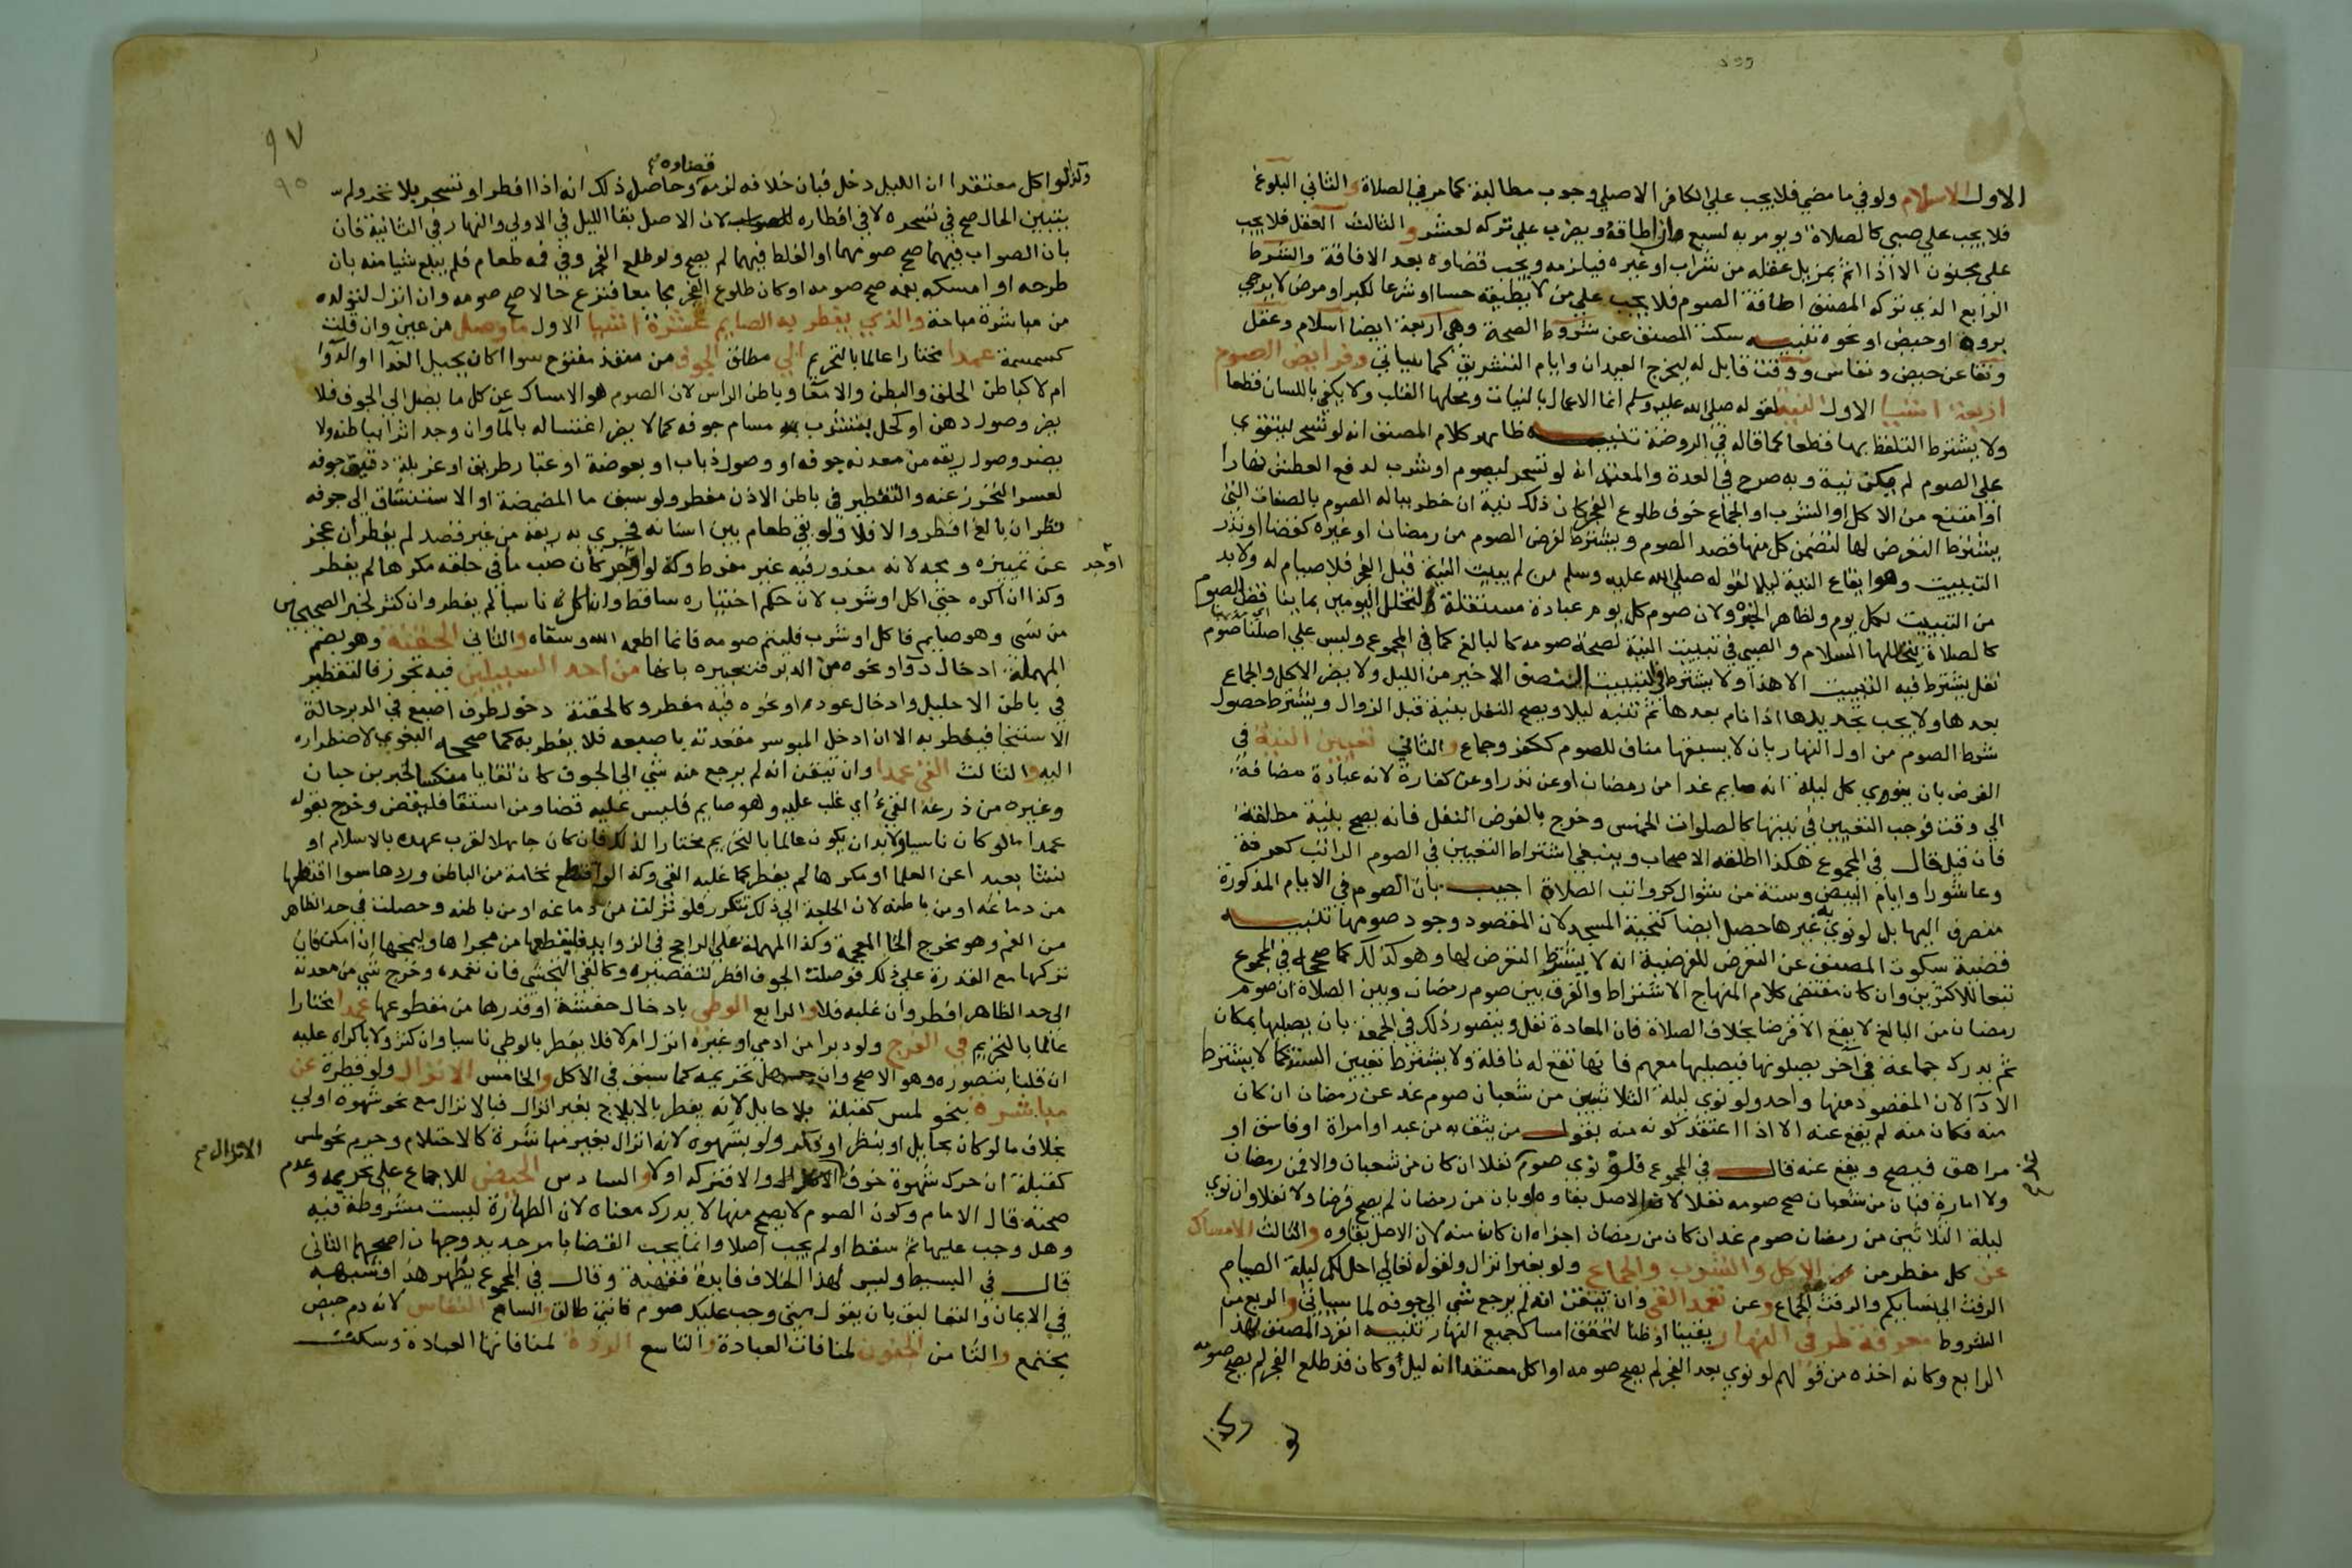 الاول الاسلام ولو في ما مضي فلا يجب علي الكافر الاصلي وجوب مطالبة كما مر في الصلاة والثاني البلوغ
فلا يجب علي صبي كالصلاة ويومر به لسبع ان اطاقه ويضرب علي تركه لعشر والثالث العقل فلا يجب
علي مجنون الا اذا اثم بمزيل عقله من شراب او غيره فيلزمه ويجب قضاوه بعد الافاقة والشرط
الرابع الذي تركه المصنف اطاقة الصوم فلا يجب علي من لا يطيقه حسا او شرعا لكبر او مرض لا يرجي
بروه او حيض او نحوه تنبيه سكت المصنف عن شروط الصحة وهي اربعة ايضا اسلام وعقل
ونقا عن حيض ونفاس ووقت قابل له ليخرج العيدان وايام التشريق كما سياتي وفرايض الصوم
اربعة اشيا الاول النية لقوله صلي الله عليه وسلم انما الاعمال بالنيات ومحلها القلب ولا يكفي باللسان قطعا
ولا يشترط التلفظ بها قطعا كما قاله في الروضة تنبيه ظاهر كلام المصنف انه لو تسحر ليتقوي
علي الصوم لم يكن نية وبه صرح في العدة والمعتمد انه لو تسحر ليصوم او شرب لدفع العطش نهارا
او امتنع من الاكل او الشرب او الجماع خوف طلوع الفجر كان ذلك نية ان خطر بباله الصوم بالصفات التي
يشترط التعرض لها لتضمن كل منها قصد الصوم ويشترط لفرض الصوم من رمضان او غيره كقضا او نذر
التبييت وهو ايقاع النية ليلا لقوله صلي الله عليه وسلم من لم يبيت النية قبل الفجر فلا صيام له ولا بد
من التبييت لكل يوم ولظاهر الخبر ولان صوم كل يوم عبادة مستقلة لتخلل اليومين بما يناقض الصوم
كالصلاة يتخللها السلام والصبي في تبييت النية لصحة صومه كالبالغ كما في المجموع وليس علي اصلنا صوم
نفل يشترط فيه التبييت الا هذا ولا يشترط في التبييت النصف الاخير من الليل ولا يضر الاكل والجماع
بعدها ولا يجب تجديدها اذا نام بعدها ثم تنبه ليلا ويصح النفل بنية قبل الزوال ويشترط حصول
شرط الصوم من اول النهار بان لا يسبقها مناف للصوم ككفر وجماع والثاني تعيين النية في
الفرض بان ينوي كل ليلة انه صايم غدا من رمضان او عن نذر او عن كفارة لانه عبادة مضافة
الي وقت فوجب التعيين في نيتها كالصلوات الخمس وخرج بالفرض النفل فانه يصح بنية مطلقة
فان قيل قال في المجموع هكذا اطلقه الاصحاب وينبغي اشتراط التعيين في الصوم الراتب كعرفة
وعاشورا وايام البيض وستة من شوال كرواتب الصلاة اجيب بان الصوم في الايام المذكورة
منصرف اليها بل لو نوي به غيرها حصل ايضا كتحية المسجد لان المقصود وجود صومها تنبيه
قضية سكوت المصنف عن التعرض للفرضية انه لا يشترط التعرض لها وهو كذلك كما صححه في المجموع
تبعا للاكثرين وان كان مقتضي كلام المنهاج الاشتراط والفرق بين صوم رمضان وبين الصلاة ان صوم
رمضان من البالغ لا يقع الا فرضا بخلاف الصلاة فان المعادة نفل ويتصور ذلك في الجمعة بان يصليها بمكان
ثم يدرك جماعة في آخر يصلونها فيصليها معهم فانها تقع له نافلة ولا يشترط تعيين السنة كما لا يشترط
الادا لان المقصود منهما واحد ولو نوي ليلة الثلاثين من شعبان صوم غد عن رمضان ان كان
منه فكان منه لم يقع عنه الا اذا اعتقد كونه منه بقول من يثق به من عبد او امراة او فاسق او
مراهق فيصح ويقع عنه قال في المجموع فلو نوي صوم نفلا ان كان من شعبان والا فمن رمضان
ولا امارة فبان من شعبان صح صومه نفلا لان الاصل بقاوه وان بان من رمضان لم يصح فرضا ولا نفلا وان نوي
ليلة الثلاثين من رمضان صوم غد ان كان من رمضان اجزاه ان كان منه لان الاصل بقاوه والثالث الامساك
عن كل مفطر من الاكل والشرب والجماع ولو بغير انزال ولقوله تعالي احل لكم ليلة الصيام
الرفث الي نسايكم والرفث الجماع وعن تعمد القي وان تيقن انه لم يرجع شي الي جوفه لما سياتي والرابع من
الشروط معرفة طرفي النهار يقينا او ظنا لتحقق امساك جميع النهار تنبيه انفرد المصنف بهذا
الرابع وكانه اخذه من قولهم لو نوي بعد الفجر لم يصح صومه او اكل معتقدا انه ليل وكان قد طلع الفجر لم يصح صومه
وكذا
لو
٩٧
٩٥
وكذا لو اكل معتقدا ان الليل دخل فبان خلافه لزمه قضاوه وحاصل ذلك انه اذا افطر او تسحر بلا تحر ولم
يتبين الحال صح في تسحره لا في افطاره لان الاصل بقا الليل في الاولي والنهار في الثانية فان
بان الصواب فيهما صح صومهما او الغلط فيهما لم يصح ولو طلع الفجر وفي فمه طعام فلم يبلع شيا منه بان
طرحه او امسكه بفمه صح صومه او كان طلوع الفجر مجامعا فنزع حالا صح صومه وان انزل لتولده
من مباشرة مباحة والذي يفطر به الصايم عشرة اشيا الاول ما وصل من عين وان قلت
كسمسمة عمدا مختارا عالما بالتحريم الي مطلق الجوف من منفذ مفتوح سوا اكان يحيل الغذا او الدوا
ام لا كباطن الحلق والبطن والامعا وباطن الراس لان الصوم هو الامساك عن كل ما يصل الي الجوف فلا
يضر وصول دهن او كحل بتشرب مسام جوفه كما لا يضر اغتساله بالمآ وان وجد اثرا بباطنه ولا
يضر وصول ريقه من معدنه جوفه او وصول ذباب او بعوضة او غبار طريق او غربلة دقيق جوفه
لعسر التحرز عنه والتقطير في باطن الاذن مفطر ولو سبق ما المضمضة او الاستنشاق الي جوفه
نظر ان بالغ افطر والا فلا ولو بقي طعام بين اسنانه فجري به ريقه من غير قصد لم يفطر ان عجز
عن تمييزه ومجه لانه معذور فيه غير مفرط وكذا لو اوجر كان صب ما في حلقه مكرها لم يفطر
اوجر
وكذا ان اكره حتي اكل او شرب لان حكم اختياره ساقط وان اكل ناسيا لم يفطر وان كثر لخبر الصحيحين
من نسي وهو صايم فاكل او شرب فليتم صومه فانما اطعمه الله وسقاه والثاني الحقنة وهو بضم
المهملة ادخال دوا او نحوه من الدبر فتعبيره بانها من احد السبيلين فيه تجوز فالتقطير
في باطن الاحليل وادخال عود او نحوه فيه مفطر وكالحقنة دخول طرف اصبع في الدبر حالة
الاستنجا فيفطر به الا ان ادخل المبوسر مقعدته باصبعه فلا يفطر به كما صححه البغوي لاضطراره
اليه والثالث القي عمدا وان تيقن انه لم يرجع منه شي الي الجوف كان تقايا منكسا لخبر بن حبان
وغيره من ذرعه القيء اي غلب عليه وهو صايم فليس عليه قضا ومن استقا فليقض وخرج بقوله
عمدا ما لو كان ناسيا ولا بد ان يكون عالما بالتحريم مختارا لذلك فان كان جاهلا لقرب عهده بالاسلام او
نشا بعيدا عن العلما او مكرها لم يفطر كما غلبه القي وكذا لو اقتلع نخامة من الباطن وردها سوا اقتلعها
من دماغه او من باطنه لان الحاجة الي ذلك تتكرر فلو نزلت من دماغه او من باطنه وحصلت في حد الظاهر
من الفم وهو مخرج الخا المعجمة وكذا المهملة علي الراجح في الزوايد فليقطعها من مجراها وليمجها ان امكن فان
تركها مع القدرة علي ذلك فوصلت الجوف افطر لتقصيره وكالقي التجشي فان تعمده وخرج شي من معدته
الي حد الظاهر افطر وان غلبه فلا والرابع الوطي بادخال حشفة او قدرها من مقطوعها عمدا مختارا
عالما بالتحريم في الفرج ولو دبرا من ادمي او غيره انزل ام لا فلا يفطر بالوطي ناسيا وان كثر ولا باكراه عليه
ان قلنا بتصوره وهو الاصح وان جهل تحريمه كما سبق في الاكل والخامس الانزال ولو قطرة عن
مباشرة بنحو لمس كقبلة بلا حايل لانه يفطر بالايلاج بغير انزال فبالانزال مع نحو شهوة اولي
بخلاف ما لو كان بحايل او بنظر او فكر ولو بشهوة لانه انزال بغير مباشرة كالاحتلام وحرم نحو لمس
كقبلة ان حرك شهوة خوف الانزال والا فتركه اولا والسادس الحيض للاجماع علي تحريمه وعدم
الانزال صح
صحته قال الامام وكون الصوم لا يصح منها لا يدرك معناه لان الطهارة ليست مشروطة فيه
وهل وجب عليها ثم سقط او لم يجب اصلا وانما يجب القضا بامر جديد وجهان اصحهما الثاني
قال في البسيط وليس لهذا الخلاف فايدة فقهية وقال في المجموع يظهر هذا وشبهه
في الايمان والتعاليق بان يقول متي وجب عليك صوم فانتي طالق والسابع النفاس لانه دم حيض
يجتمع والثامن الجنون لمنافات العبادة والتاسع الردة لمنافاتها العبادة وسكت